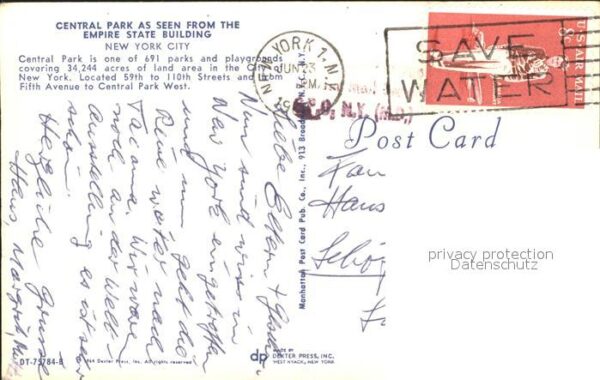 CENTRAL PARK AS SEEN FROM THE
EMPIRE STATE BUILDING
NEW YORK CITY
Central Park is one of 691 parks and playgrounds
covering 34,244 acres of land area in the City of
New York. Located 59th to 110th Streets and from
Fifth Avenue to Central Park West.
Liebe Eltern +
Nun sind wir in
New York eingetroffen
und nun geht die
Reise weiter nach
Wir waren
noch an der Welt-
ausstellung es ist sehr
schön.
Herzliche Grüsse
Hans, Margrit,
DT-75784-B
Dexter Press, Inc. All rights reserved
Manhattan Post Card Pub. Co., Inc., 913 Broadway, N.Y.C., N.Y.
dp
MADE BY
DEXTER PRESS, INC.
WEST NYACK, NEW YORK
NEW YORK 1, N.Y.
JUN 23
PM
19
SAVE
WATER
US AIR MAIL
8c
N.Y.
Post Card
Hans
privacy protection
Datenschutz